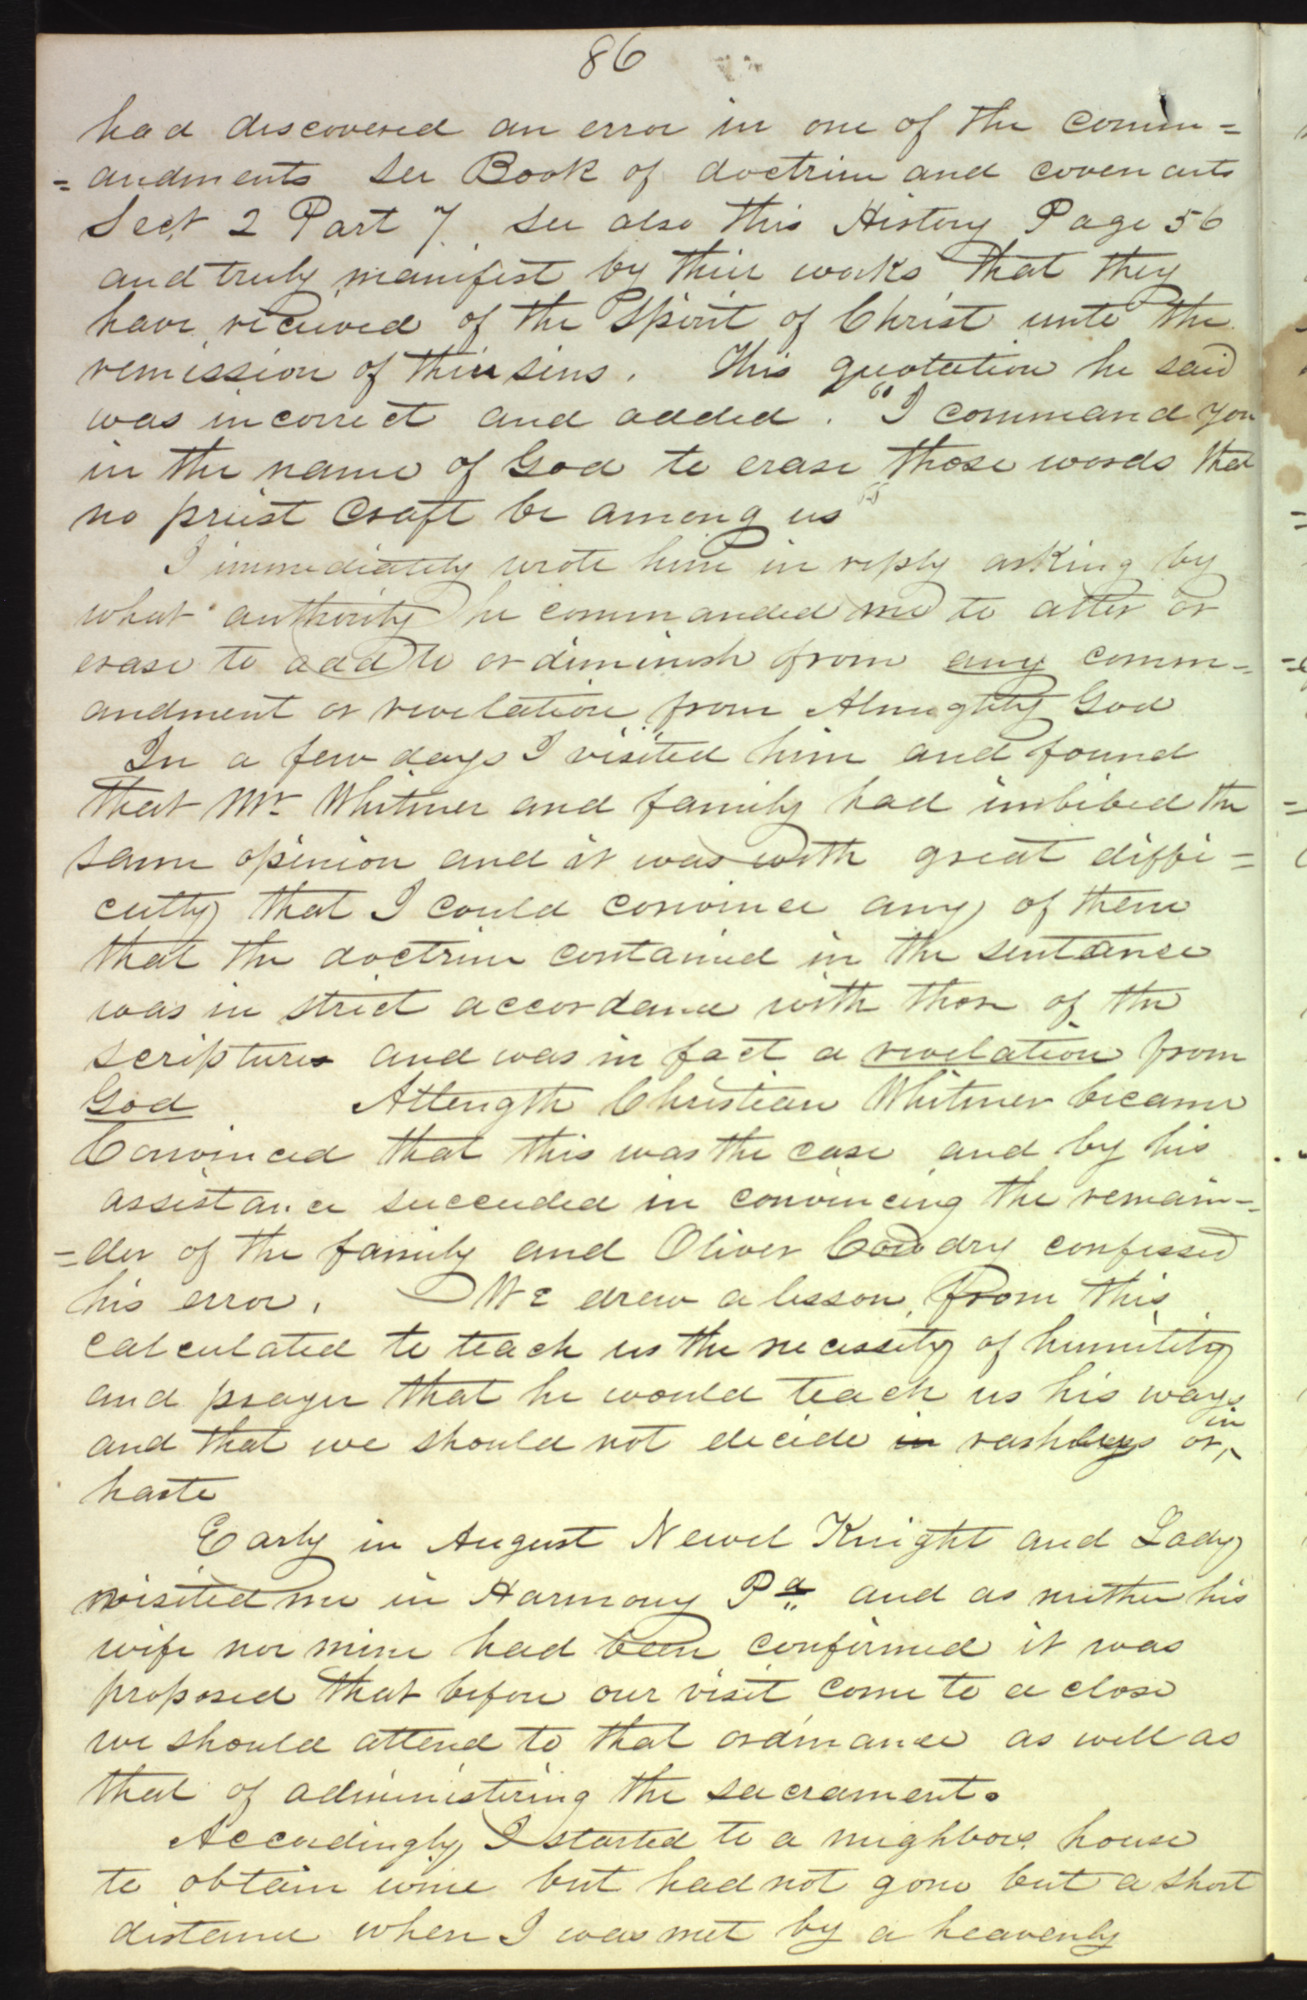 86
had discovered an error in one of the comm=
=andments see Book of doctrine and covenants
Sect 2 Part 7. see also this History Page 56
and truly manifest by their works that they
have received of the Spirit of Christ unto the
remission of their sins. This quotation he said
was incorrect and added. "I command you
in the name of God to erase those words that
no priest Craft be among us"
I immediately wrote him in reply asking by
what authority he commanded me to alter or
erase to add to or diminish from any comm=
andment or revelation from Almighty God
In a few days I visited him and found
that Mr Whitmer and family had imbibed the
same opinion and it was with great diffi=
culty that I could convince any of them
that the doctrine contained in the sentance
was in strict accordance with those of the
scriptures and was in fact a revelation from
God Atlength Christian Whitmer became
Convinced that this was the case and by his
assistance succeeded in convincing the remain=
=der of the family and Oliver Cowdry confessed
his error. We drew a lesson from this
calculated to teach us the necessity of humility
and prayer that he would teach us his ways
and that we should not decide in rashly or in
haste
Early in August Newel Knight and Lady
visited me in Harmony Pa and as neither his
wife nor mine had been confirmed it was
proposed that before our visit come to a close
we should attend to that ordinance as well as
that of administering the sacrament.
Accordingly I started to a neighbors house
to obtain wine but had not gone but a short
distance when I was met by a heavenly